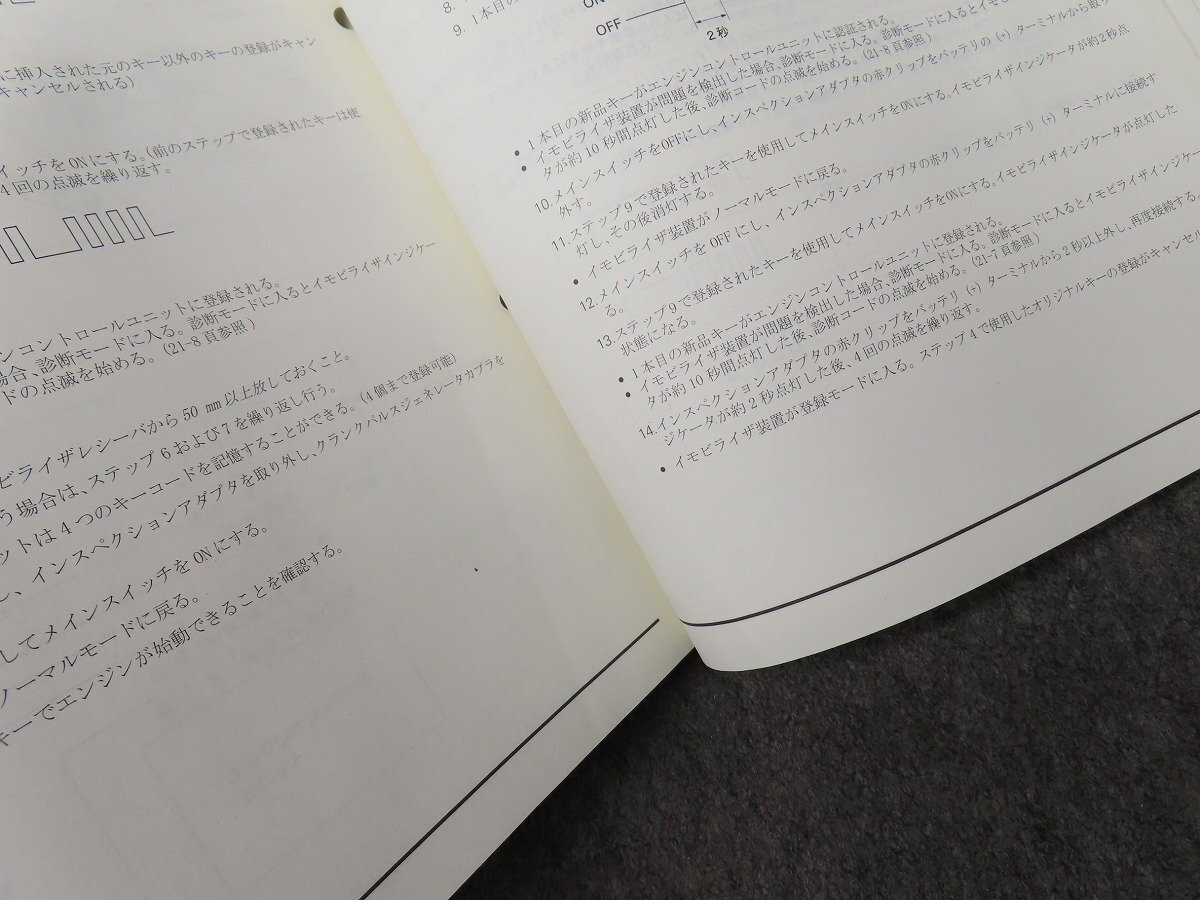 に挿入された元のキー以外のキーの登録がキャン
キャンセルされる)
イッチを ON にする。(前のステップで登録されたキーは使
4 回の点滅を繰り返す。
ンコントロールユニットに登録される。
場合、診断モードに入る。診断モードに入るとイモビライザインジケー
ドの点滅を始める。(21-8 頁参照)
ビライザレシーバから 50 mm 以上放しておくこと。
う場合は、ステップ 6 および 7 を繰り返し行う。
ットは 4 つのキーコードを記憶することができる。(4 個まで登録可能)
し、インスペクションアダプタを取り外し、クランクパルスジェネレータカプラを
してメインスイッチを ON にする。
ノーマルモードに戻る。
キーでエンジンが始動できることを確認する。
8.
9. 1本目の
ON
OFF
2秒
• 1 本目の新品キーがエンジンコントロールユニットに認証される。
• イモビライザ装置が問題を検出した場合、診断モードに入る。診断モードに入るとイモビ
タが約 10 秒間点灯した後、診断コードの点滅を始める。(21-8 頁参照)
10.メインスイッチをOFFにし、インスペクションアダプタの赤クリップをバッテリの (+) ターミナルから取り
外す。
11.ステップ 9 で登録されたキーを使用してメインスイッチをONにする。イモビライザインジケータが約2秒点
灯し、その後消灯する。
• イモビライザ装置がノーマルモードに戻る。
12.メインスイッチを OFF にし、インスペクションアダプタの赤クリップをバッテリ (+) ターミナルに接続す
る。
13.ステップ9で登録されたキーを使用してメインスイッチをONにする。イモビライザインジケータが点灯した
状態になる。
• 1 本目の新品キーがエンジンコントロールユニットに登録される。
• イモビライザ装置が問題を検出した場合、診断モードに入る。診断モードに入るとイモビライザインジケー
タが約 10 秒間点灯した後、診断コードの点滅を始める。(21-7 頁参照)
14.インスペクションアダプタの赤クリップをバッテリ (+) ターミナルから 2 秒以上外し、再度接続する。
ジケータが約 2 秒点灯した後、4 回の点滅を繰り返す。
• イモビライザ装置が登録モードに入る。ステップ 4 で使用したオリジナルキーの登録がキャンセル